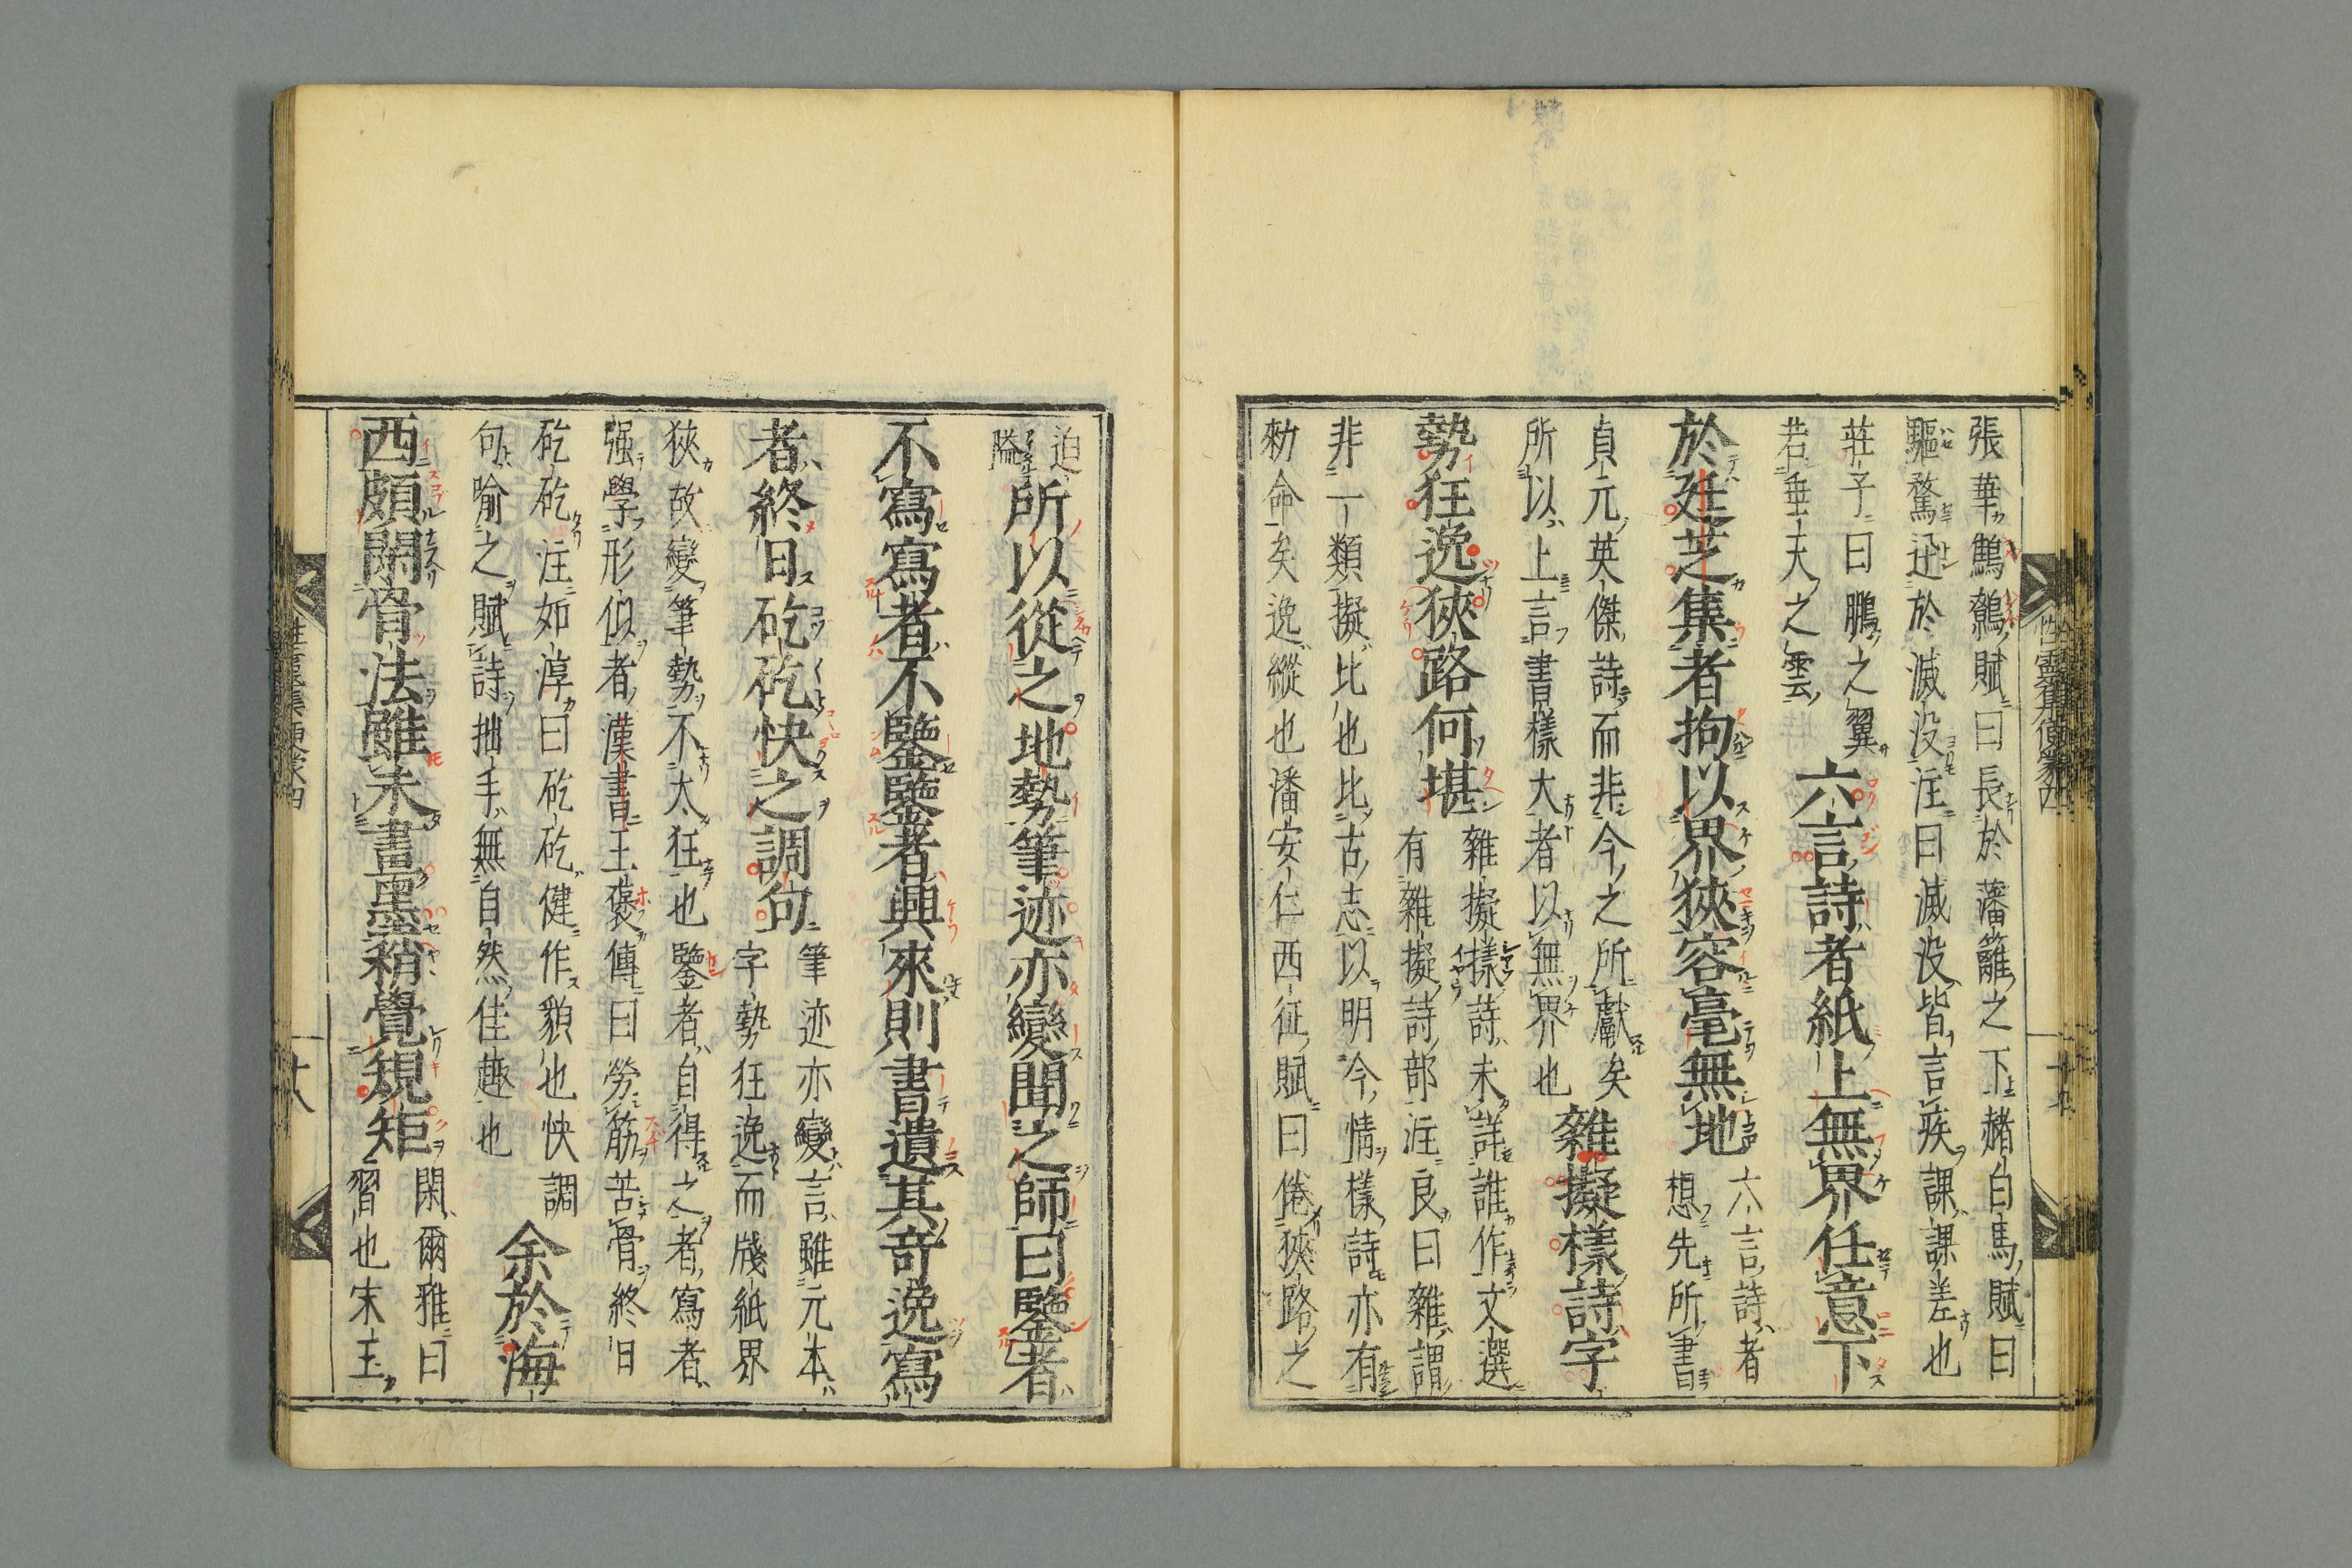 張華鷦鷯賦曰長於藩籬之下赭白馬賦曰
驅騖迅於滅没注曰滅没皆言疾課課差也
莊子曰鵬之翼
若垂天之雲
六言詩者紙上無界任意下
於廷芝集者拘以界狹容毫無地
六言詩者
想先所書
貞元英傑詩而非今之所獻矣
所以上言書樣大者以無界也
雜擬樣詩字
勢狂逸狹路何堪
雜擬樣詩未詳誰作文選
有雜擬詩部注良曰雜謂
非一類擬比也比古志以明今情樣詩亦有
勑命矣逸縱也潘安仁西征賦曰倦狹路之
迫
隘
所以從之地勢筆迹亦變聞之師曰鑒者
不寫寫者不鑒鑒者興來則書遺其奇逸寫
者終日矻矻快之調句
筆迹亦變言雖元本
字勢狂逸而牋紙界
狹故變筆勢不太狂也鑒者自得之者寫者
强學形似者漢書王襃傳曰勞筋苦骨終日
矻矻注如淳曰矻矻健作貌也快調
句喻之賦詩拙手無自然佳趣也
余於海
西頗閑骨法雖未畫墨稍覺規矩
閑爾雅曰
習也宋玉